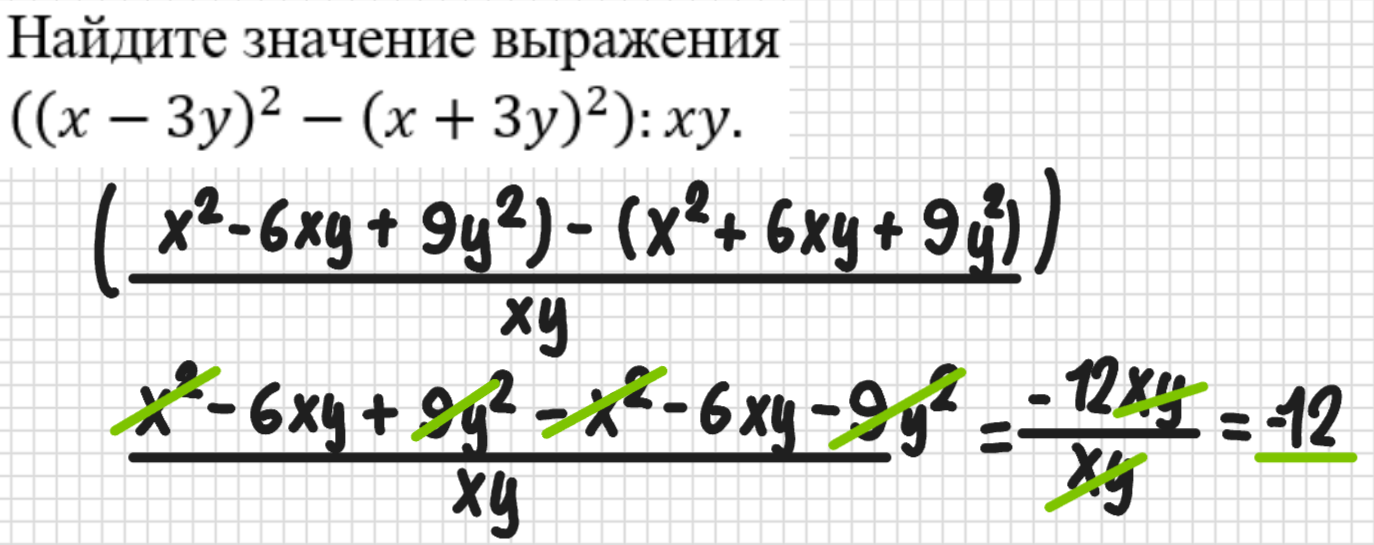 Найдите значение выражения
((x − 3y)² − (x + 3y)²): xy.
( x² - 6xy + 9y²) - (x² + 6xy + 9y²) )
xy
x² - 6xy + 9y² - x² - 6xy - 9y² = -12xy = -12
xy xy